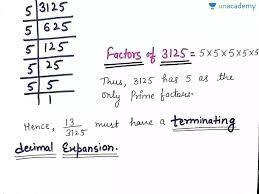 unacademy
5 | 3125
5 | 625
5 | 125
5 | 25
5 | 5
1
Factors of 3125 = 5×5×5×5×5
Thus, 3125 has 5 as the
only Prime factors.
Hence, 13/3125 must have a terminating
decimal Expansion.